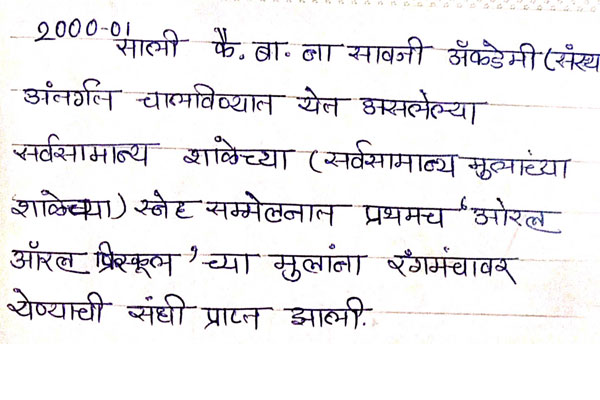 2000-01
साली कै. बा. ना सावनी ॲकडेमी (संस्थ
अंतर्गत चालविण्यात येत असलेल्या
सर्वसामान्य शाळेच्या (सर्वसामान्य मुलांच्या
शाळेच्या) स्नेह सम्मेलनात प्रथमच 'ओरल
ऑरल प्रिस्कूल' च्या मुलांना रंगमंचावर
येण्याची संधी प्राप्त झाली.